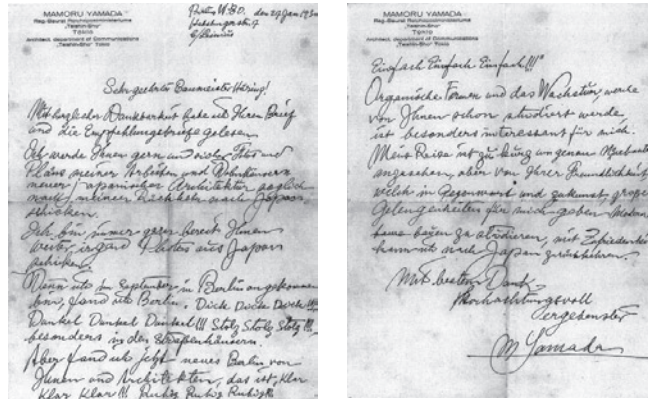 MAMORU YAMADA
Reg-Baurat Reichspostministeriums
"Teishin-Sho"
TOKIO
Architect, department of Communications
"Teishin-Sho" Tokio
Berlin W. 30. den 29 Jan 1930
Sehr geehrter Baumeister Häring!
Mit herzlicher Dankbarkeit habe ich Ihren Brief
und die Empfehlungsbriefe gelesen
Ich werde Ihnen gern und vieler Fotos und
Pläne meiner Arbeiten und Wohnhäusern
neuer japanischer Architektur sogleich
nach meiner Rückkehr nach Japan
schicken.
Ich bin immer gern bereit Ihnen
weiter irgend Photos aus Japan
schicken.
Denn ich im September in Berlin angekommen
bin, fand ich Berlin. Dick Dick Dick !!!
Dunkel Dunkel Dunkel !!! Stolz Stolz Stolz !!!
besonders in den Straßenhäusern.
Aber fand ich jetzt neues Berlin von
Ihnen und Architekten, das ist, Klar
Klar Klar !!! Ruhig Ruhig Ruhig !!!
MAMORU YAMADA
Reg-Baurat Reichspostministeriums
"Teishin-Sho"
TOKIO
Architect, department of Communications
"Teishin-Sho" Tokio
Einfach Einfach Einfach !!!"
Organische Formen und das Wachstum, welche
von Ihnen schon studiert werde,
ist besonders interessant für mich.
Meine Reise ist zu kurz um genau
angesehen, aber von Ihrer Freundlichkeit
welch in Gegenwart und zukunft große
Gelengenheiten für mich geben
zu studieren, mit Zufriedenheit
kann ich nach Japan zurückkehren.
Mit bestem Dank
Hochachtungsvoll
Ergebenster
M Yamada